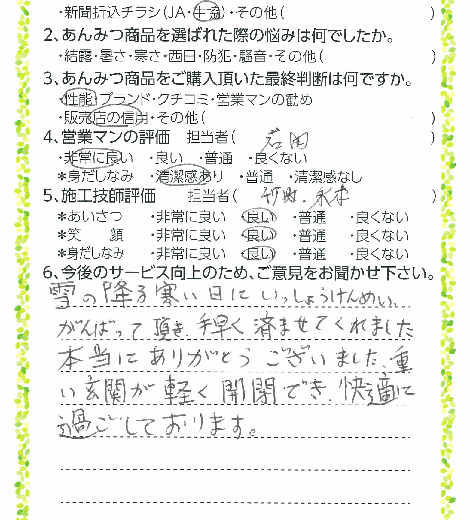 ・新聞折込チラシ(JA・生活)・その他( )
2、あんみつ商品を選ばれた際の悩みは何でしたか。
・結露・暑さ・寒さ・西日・防犯・騒音・その他( )
3、あんみつ商品をご購入頂いた最終判断は何ですか。
・性能・ブランド・クチコミ・営業マンの勧め
・販売店の信用・その他( )
4、営業マンの評価 担当者( )
・非常に良い ・良い ・普通 ・良くない
*身だしなみ ・清潔感あり ・普通 ・清潔感なし
5、施工技師評価 担当者( )
*あいさつ ・非常に良い ・良い ・普通 ・良くない
*笑 顔 ・非常に良い ・良い ・普通 ・良くない
*身だしなみ ・非常に良い ・良い ・普通 ・良くない
6、今後のサービス向上のため、ご意見をお聞かせ下さい。
雪の降る寒い日にいっしょうけんめい、
がんばって頂き、手早く済ませてくれました
本当にありがとうございました、重
い玄関が軽く開閉でき、快適に
過ごしております。